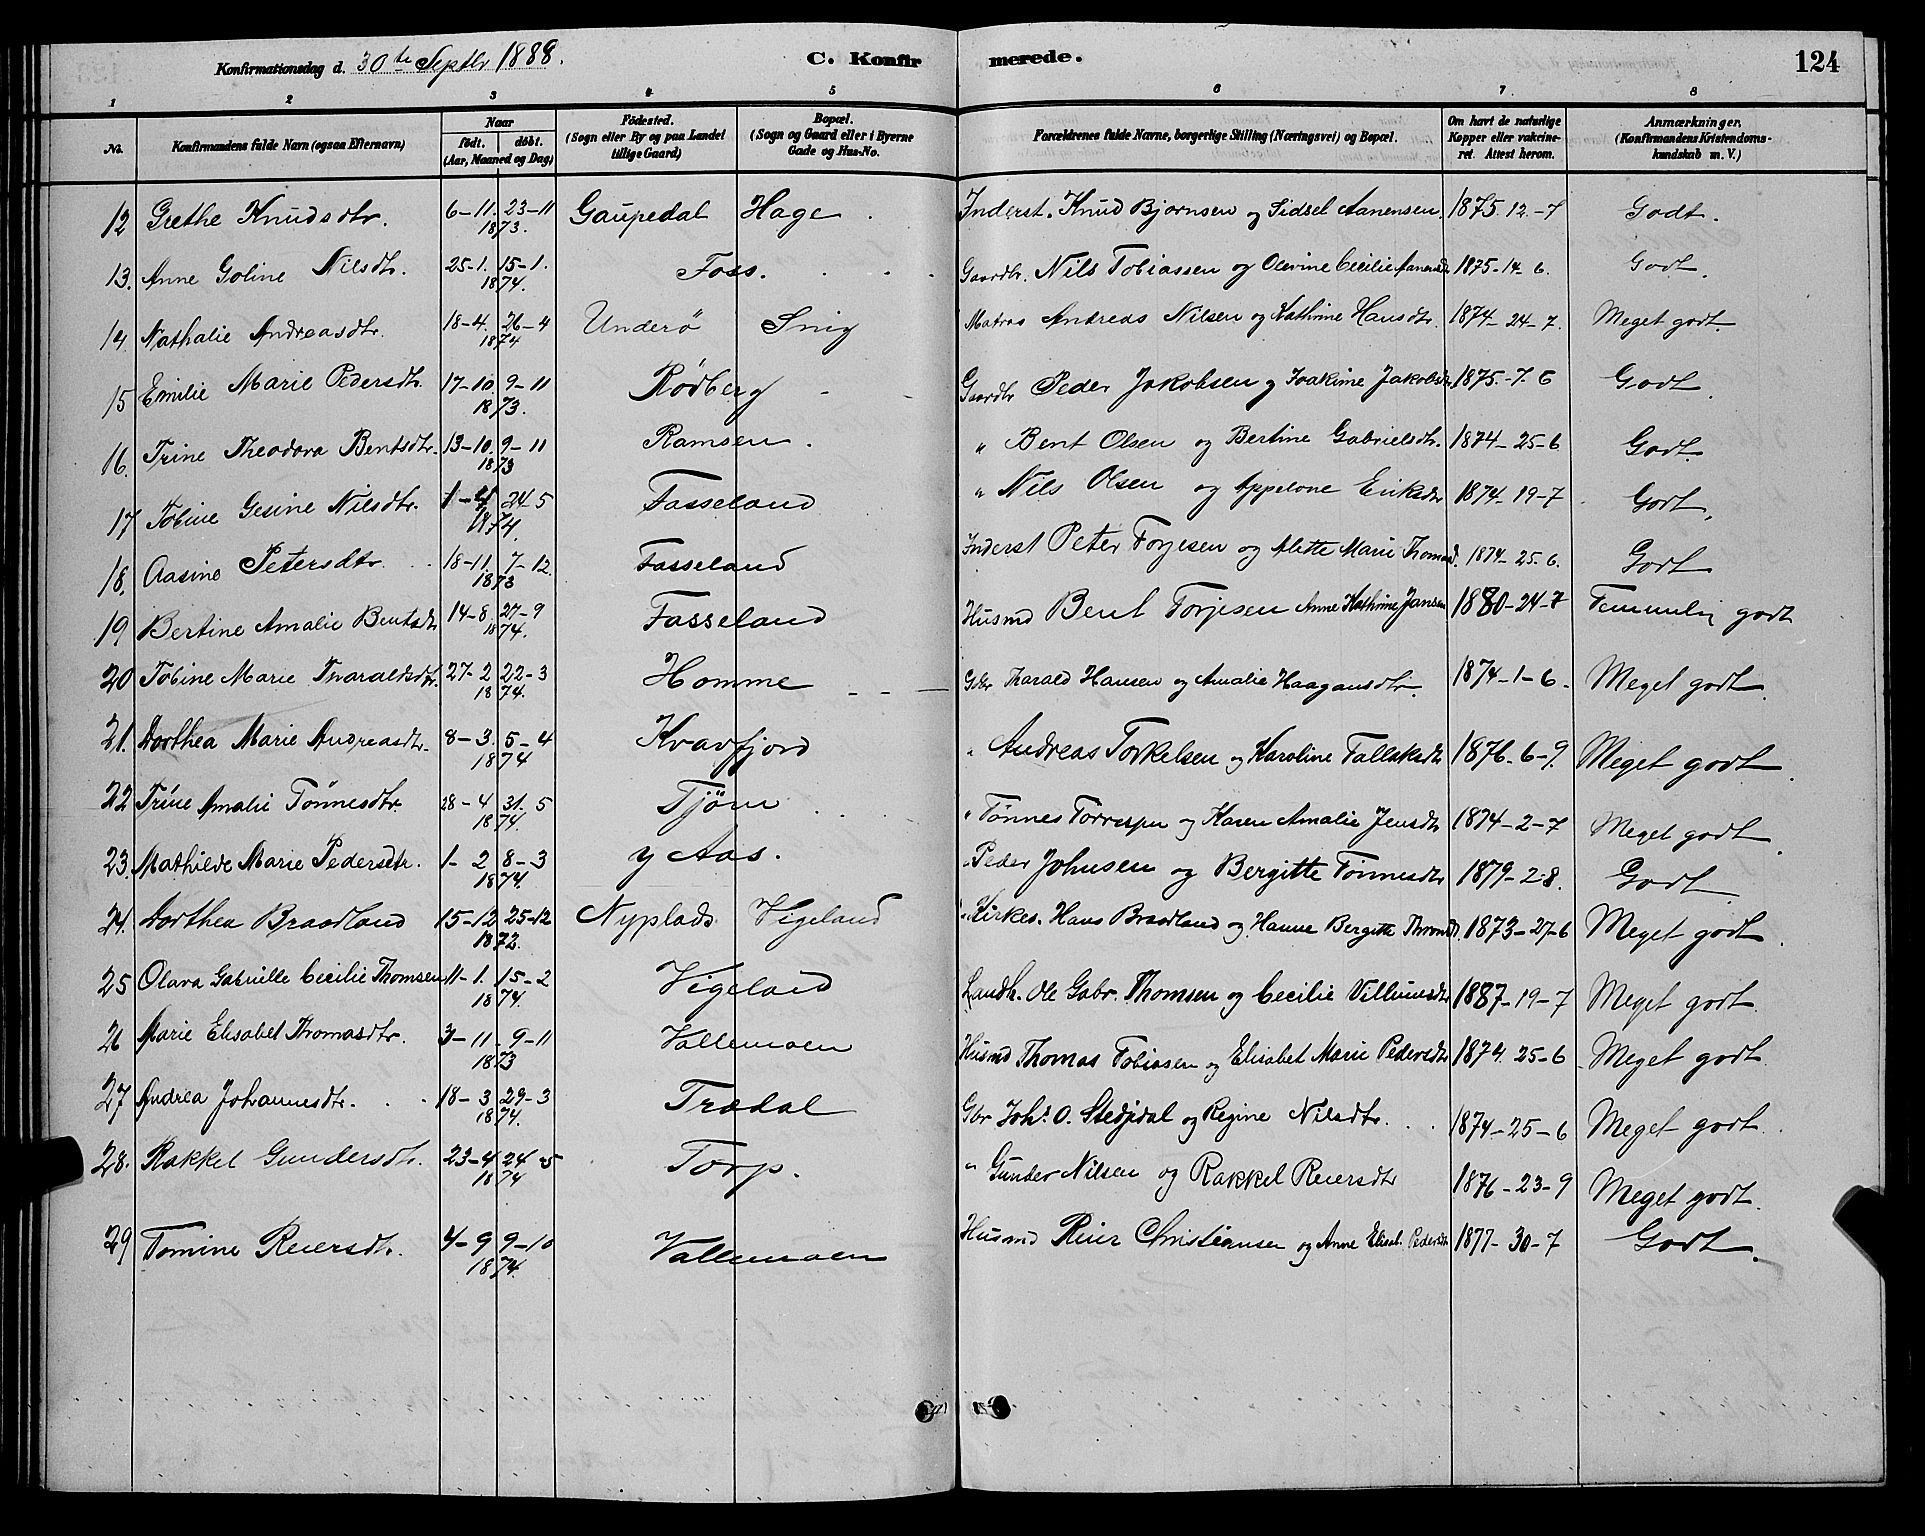 Konfirmationsdag d. 30te Septbr 1888.
C. Konfirmerede.
124
1 2 3 4 5 6 7 8
No.
Konfirmandens fulde Navn (ogsaa Efternavn)
Naar
födt. döbt.
(Aar, Maaned og Dag)
Födested.
(Sogn eller By og paa Landet
tillige Gaard)
Bopæl.
(Sogn og Gaard eller i Byerne
Gade og Hus-No.
Forældrenes fulde Navne, borgerlige Stilling (Næringsvei) og Bopæl.
Om havt de naturlige
Kopper eller vakcine-
ret. Attest herom.
Anmærkninger,
(Konfirmandens Kristendoms-
kundskab m. V.)
12 Grethe Knudsdtr. 6-11. 23-11 1873. Gaupedal Hage. Inderst. Knud Bjornsen og Sidsel Aanensen. 1875. 12.-7 Godt.
13. Anne Goline Nilsdtr. 25-1. 15-1. 1874. Foss. Gaardbr. Nils Tobiassen og Olevine Cecilie Aanensdtr 1875-14-6. Godt.
14. Nathalie Andreasdtr. 18-4. 26-4 1874 Underö Snig Matros Andreas Nilsen og Kathrine Hansdtr. 1874-24-7. Meget godt.
15 Emilie Marie Pedersdtr. 17-10. 9-11 1873. Rödberg Gaardbr Peder Jakobsen og Joakime Jakobsdtr 1875.-7.6 Godt.
16. Trine Theodora Bentsdtr. 13-10. 9-11 1873 Ramsen. " Bent Olsen og Bertine Gabrielsdtr. 1874-25-6 Godt.
17 Tobine Gesine Nilsdtr. 1-4 24-5 1874. Fasseland " Nils Olsen og Appelone Eriksdtr 1874-19-7 Godt.
18. Aasine Petersdtr. 18-11. 7-12. 1873 Fasseland Inderst Peter Torjesen og Alette Marie Thomasd. 1874-25-6. Godt
19 Bertine Amalie Bentsdtr 14-8. 27-9 1874. Fasseland Husmd Bent Torjesen Anne Kathrine Jansen 1880-24-7 Temmelig godt
20 Tobine Marie Tharaldsdtr. 27-2 22-3 1874. Homme Gbr Tharald Hansen og Amalie Haagansdtr. 1874-1-6. Meget godt.
21. Dorthea Marie Andreasdtr. 8-3. 5-4 1874 Kvavfjord " Andreas Torkelsen og Karoline Fallaksdtr 1876-6-9. Meget godt.
22 Trine Amalie Tönnesdtr. 28-4 31.5 1874. Tjöm " Tönnes Torresen og Karen Amalie Jensdtr 1874-2-7 Meget godt.
23. Mathilde Marie Pedersdtr. 1-2 8-3 1874. y Aas. " Peder Johnsen og Bergitte Tönnesdtr 1879-2-8. Godt
24. Dorthea Braadland 15-12 25-12 1872. Nyplads Vigeland Kirkes. Hans Braadland og Hanne Bergitte Thronsd. 1873-27-6 Meget godt.
25 Olava Gabrielle Cecilie Thomsen 11-1. 15-2 1874. Vigeland Landh. Ole Gabr. Thomsen og Cecilie Villumsdtr 1887-19-7 Meget godt.
26 Marie Elisabet Thomasdtr. 3-11-9-11 1873 Vallemoen Husmd Thomas Tobiasen og Elisabet Marie Pedersdtr 1874. 25-6 Meget godt.
27 Andrea Johannesdtr. 18-3 29-3 1874. Trædal Gbr Johs. O. Stedjedal og Regine Nilsdtr. 1874-25-6 Meget godt.
28. Rakkel Gundersdtr. 23-4 24-5 1874 Torp. " Gunder Nilsen og Rakkel Reiersdtr 1876-23-9 Meget godt.
29 Tomine Reiersdtr. 4-9 9-10 1874. Vallemoen Husmd Reier Christiansen og Anne Elisab. Pedersdtr 1877-30-7 Godt.